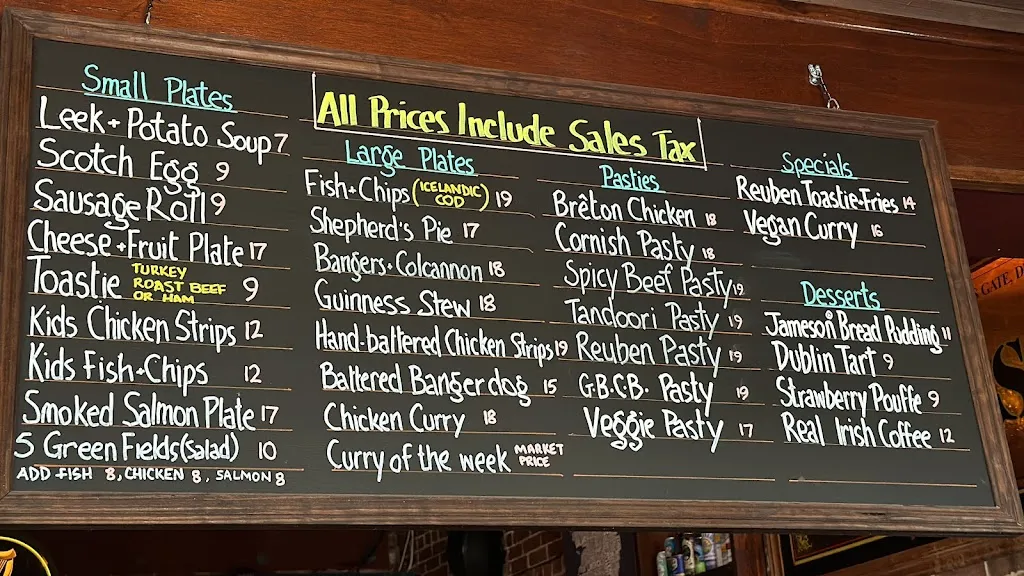 All Prices Include Sales Tax
Small Plates
Leek + Potato Soup 7
Scotch Egg 9
Sausage Roll 9
Cheese + Fruit Plate 17
Toastie TURKEY ROAST BEEF OR HAM 9
Kids Chicken Strips 12
Kids Fish + Chips 12
Smoked Salmon Plate 17
5 Green Fields (Salad) 10
ADD FISH 8, CHICKEN 8, SALMON 8
Large Plates
Fish + Chips (ICELANDIC COD) 19
Shepherd's Pie 17
Bangers + Colcannon 18
Guinness Stew 18
Hand-battered Chicken Strips 19
Battered Banger dog 15
Chicken Curry 18
Curry of the week MARKET PRICE
Pasties
Brêton Chicken 18
Cornish Pasty 18
Spicy Beef Pasty 19
Tandoori Pasty 19
Reuben Pasty 19
G.B.C.B. Pasty 19
Veggie Pasty 17
Specials
Reuben Toastie + Fries 14
Vegan Curry 16
Desserts
Jameson Bread Pudding 11
Dublin Tart 9
Strawberry Pouffe 9
Real Irish Coffee 12